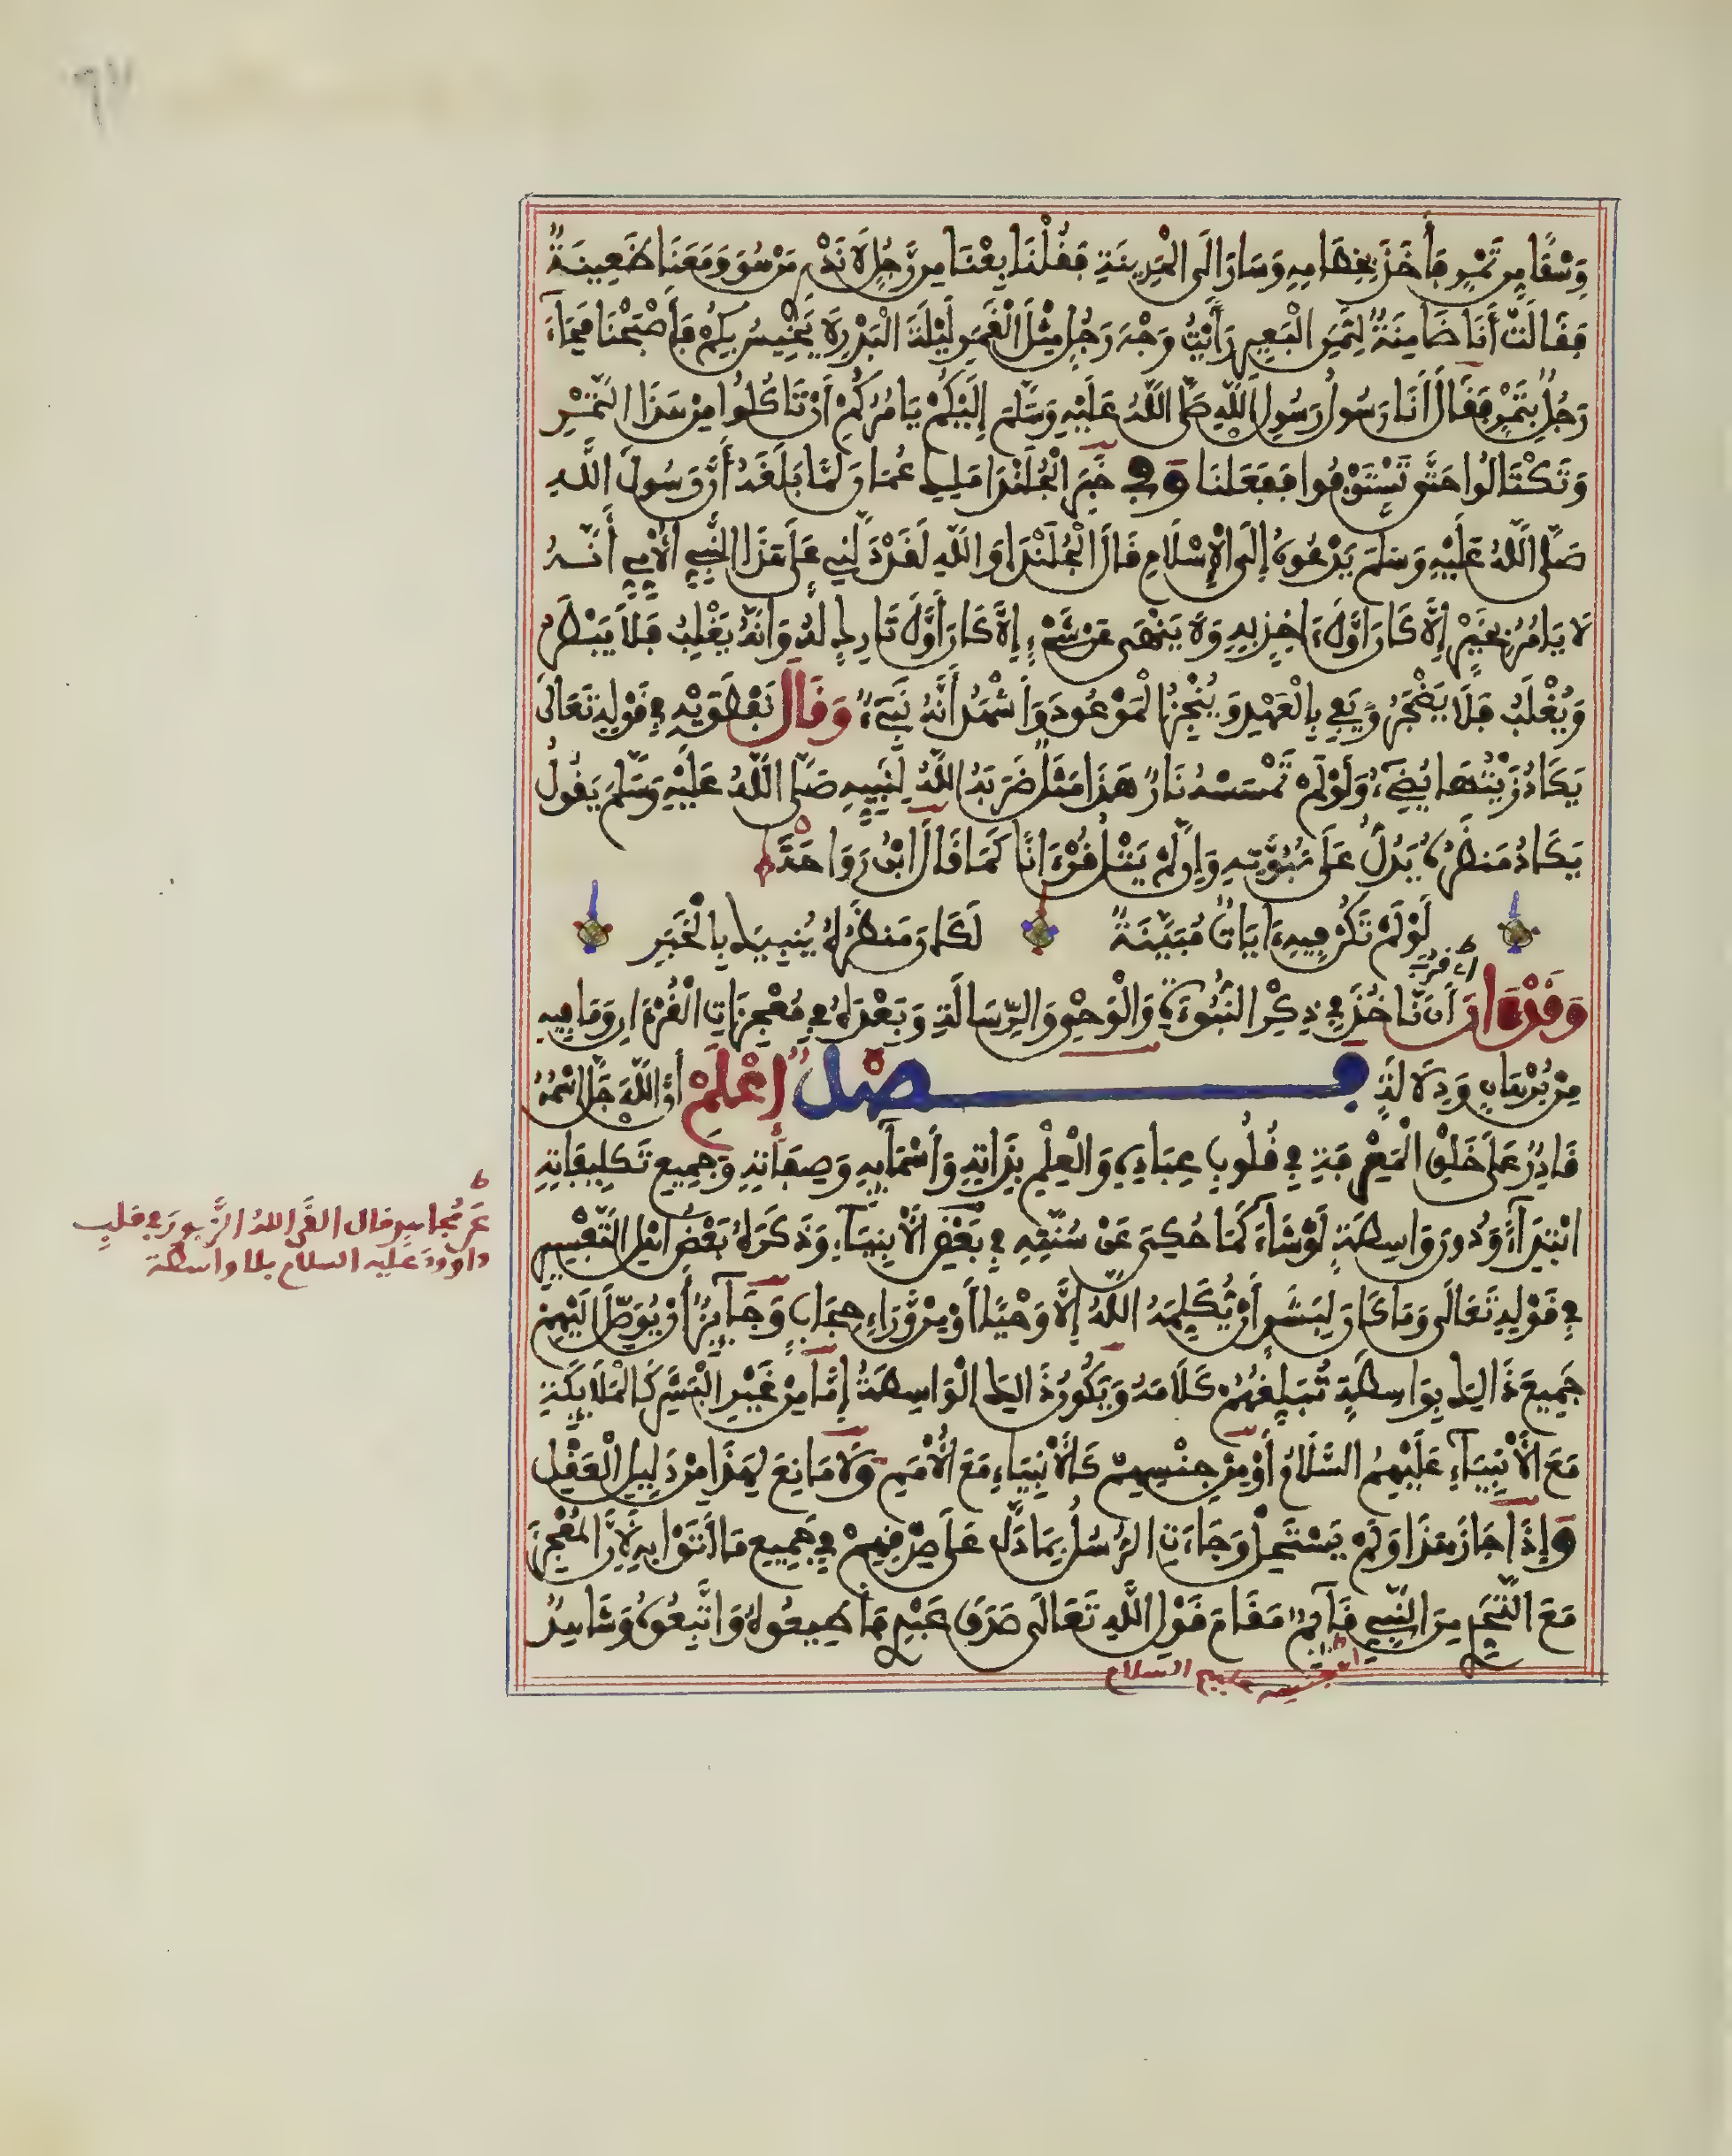 ٦٧
وَسْقًا مِن تَمْرٍ فَأَخَذَ بِخِطَامِهِ وَسَارَ إِلَى الْمَدِينَةِ فَقُلْنَا بِعْنَا مِن رَّجُلٍ لَا نَدْرِي مَنْ هُوَ وَمَعَنَا ظَعِينَةٌ
فَقَالَتْ أَنَا ضَامِنَةٌ لِثَمَنِ الْبَعِيرِ رَأَيْتُ وَجْهَ رَجُلٍ مِثْلَ الْقَمَرِ لَيْلَةَ الْبَدْرِ لَا يَخِيسُ بِكُمْ فَأَصْبَحْنَا فَجَاءَ
رَجُلٌ بِتَمْرٍ فَقَالَ أَنَا رَسُولُ رَسُولِ اللَّهِ صَلَّى اللَّهُ عَلَيْهِ وَسَلَّمَ إِلَيْكُمْ يَامُرُكُمْ أَن تَاكُلُوا مِنْ هَذَا التَّمْرِ
وَتَكْتَالُوا حَتَّى تَسْتَوْفُوا فَفَعَلْنَا وَفِي خَبَرِ الْجُلَنْدَا مَلِكِ عُمَانَ لَمَّا بَلَغَهُ أَنَّ رَسُولَ اللَّهِ
صَلَّى اللَّهُ عَلَيْهِ وَسَلَّمَ يَدْعُوهُ إِلَى الْإِسْلَامِ قَالَ الْجُلَنْدَا وَاللَّهِ لَقَدْ دَلَّنِي عَلَى هَذَا النَّبِيِّ الْأُمِّيِّ أَنَّهُ
لَا يَامُرُ بِخَيْرٍ إِلَّا كَانَ أَوَّلَ ءَاخِذٍ بِهِ وَلَا يَنْهَى عَنْ شَيْءٍ إِلَّا كَانَ أَوَّلَ تَارِكٍ لَهُ وَأَنَّهُ يَغْلِبُ فَلَا يَبْطَرُ
وَيُغْلَبُ فَلَا يَضْجَرُ وَيَفِي بِالْعَهْدِ وَيُنْجِزُ الْمَوْعُودَ وَأَشْهَدُ أَنَّهُ نَبِيٌّ وَقَالَ نَفْطَوَيْهِ فِي قَوْلِهِ تَعَالَى
يَكَادُ زَيْتُهَا يُضِيءُ وَلَوْ لَمْ تَمْسَسْهُ نَارٌ هَذَا مَثَلٌ ضَرَبَهُ اللَّهُ لِنَبِيِّهِ صَلَّى اللَّهُ عَلَيْهِ وَسَلَّمَ يَقُولُ
يَكَادُ مَنظَرُهُ يَدُلُّ عَلَى نُبُوَّتِهِ وَإِن لَمْ يَتْلُ قُرْءَانًا كَمَا قَالَ ابْنُ رَوَاحَةَ
لَوْ لَمْ تَكُنْ فِيهِ ءَايَاتٌ مُبَيَّنَةٌ لَكَانَ مَنظَرُهُ يُنبِيكَ بِالْخَبَرِ
أي قرب
وَقَدْ ءَانَ أَن نَّاخُذَ فِي ذِكْرِ النُّبُوءَةِ وَالْوَحْيِ وَالرِّسَالَةِ وَبَعْدَهُ فِي مُعْجِزَاتِ الْقُرْءَانِ وَمَا فِيهِ
مِنْ بُرْهَانٍ وَدِلَالَةٍ فَصْلٌ اِعْلَمْ أَنَّ اللَّهَ جَلَّ اسْمُهُ
قَادِرٌ عَلَى خَلْقِ الْمَعْرِفَةِ فِي قُلُوبِ عِبَادِهِ وَالْعِلْمِ بِذَاتِهِ وَأَسْمَائِهِ وَصِفَاتِهِ وَجَمِيعِ تَكْلِيفَاتِهِ
ابْتِدَاءً دُونَ وَاسِطَةٍ لَوْ شَاءَ كَمَا حُكِيَ عَنْ سُنَّتِهِ فِي بَعْضِ الْأَنبِيَاءِ وَذَكَرَهُ بَعْضُ أَهْلِ التَّفْسِيرِ
فِي قَوْلِهِ تَعَالَى وَمَا كَانَ لِبَشَرٍ أَن يُكَلِّمَهُ اللَّهُ إِلَّا وَحْيًا أَوْ مِنْ وَّرَاءِ حِجَابٍ وَجَائِزٌ أَن يُوَصِّلَ إِلَيْهِمْ
جَمِيعَ ذَالِكَ بِوَاسِطَةٍ تُبَلِّغُهُمْ كَلَامَهُ وَيَكُونُ ذَالِكَ الْوَاسِطَةُ إِمَّا مِنْ غَيْرِ الْبَشَرِ كَالْمَلَائِكَةِ
مَعَ الْأَنْبِيَاءِ عَلَيْهِمُ السَّلَامُ أَوْ مِنْ جِنْسِهِمْ كَالْأَنْبِيَاءِ مَعَ الْأُمَمِ وَلَا مَانِعَ لِهَذَا مِنْ دَلِيلِ الْعَقْلِ
وَإِذَا جَازَ هَذَا وَلَمْ يَسْتَحِلْ وَجَاءَتِ الرُّسُلُ بِمَا دَلَّ عَلَى صِدْقِهِمْ فِي جَمِيعِ مَا أَتَوْا بِهِ لِأَنَّ الْمُعْجِزَ
مَعَ التَّحَدِّي مِنَ النَّبِيِّ قَائِمٌ مَقَامَ قَوْلِ اللَّهِ تَعَالَى صَدَقَ عَبْدِي فَأَطِيعُوهُ وَاتَّبِعُوهُ وَشَاهِدٌ
عَن مُّجَاهِدٍ قال ألقى اللهُ الزَّبورَ في قلبِ
داوودَ عليه السلام بلا واسطة
عليهم السلام